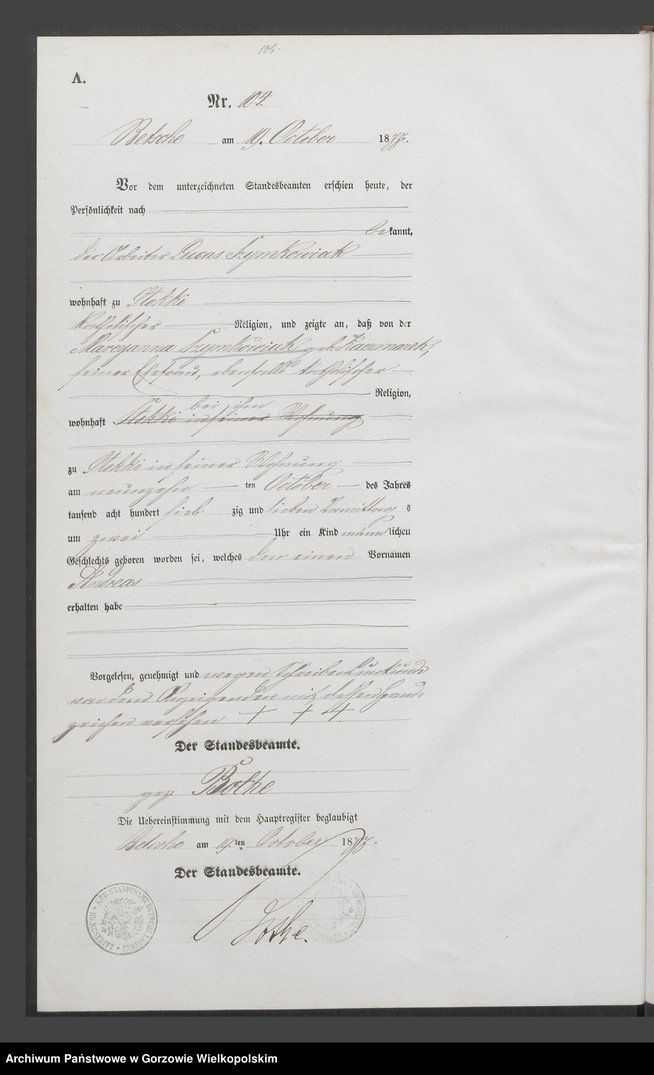 106.
A.
Nr. 104.
Betsche am 19. October 1877.
Vor dem unterzeichneten Standesbeamten erschien heute, der
Persönlichkeit nach
bekannt,
der Arbeiter Lucas Szymkowiak
wohnhaft zu Stokki
katholischer Religion, und zeigte an, daß von der
Maryanna Szymkowiak geb. Kaczmarek,
seiner Ehefrau, ebenfalls katholischer
Religion,
bei ihm
wohnhaft Stokki in seiner Wohnung
zu Stokki in seiner Wohnung
am neunzehn ten October des Jahres
tausend acht hundert sieb zig und sieben Vormittags
um zwei Uhr ein Kind männlichen
Geschlechts geboren worden sei, welches den einen Vornamen
Andreas
erhalten habe
Vorgelesen, genehmigt und wegen Schreibensunkunde
von dem Anzeigenden mit Hand
zeichen versehen + + +
Der Standesbeamte.
gez. Bothe
Die Uebereinstimmung mit dem Hauptregister beglaubigt
Betsche am 19ten October 1877.
Der Standesbeamte.
Bothe.
Archiwum Państwowe w Gorzowie Wielkopolskim